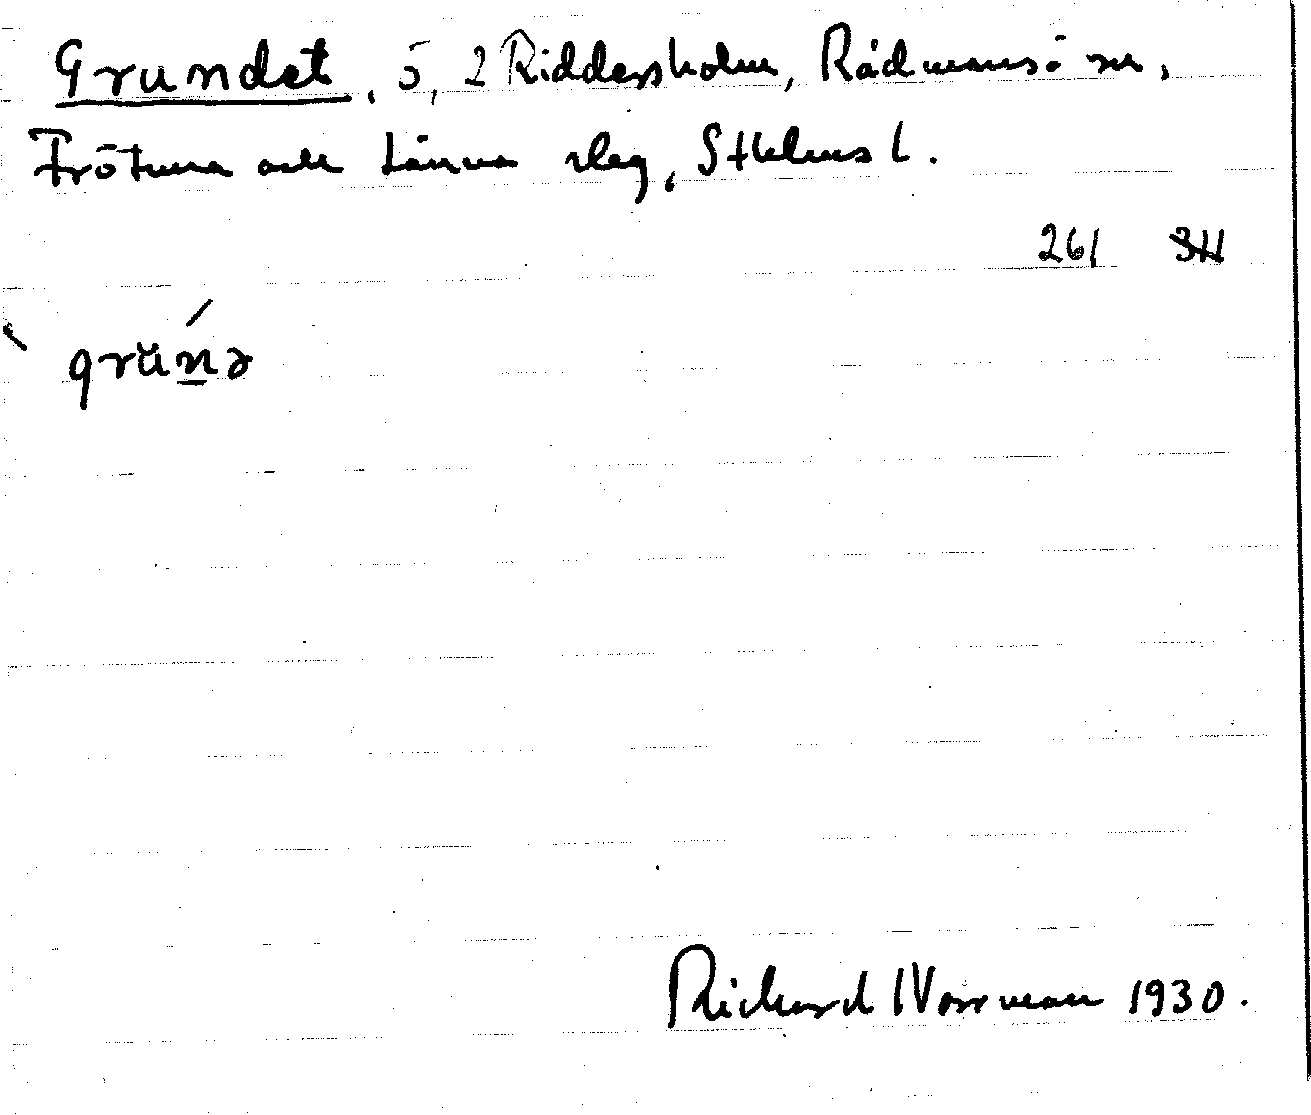 Grundet, ö, 2 Riddersholm, Rådmansö sn,
Frötuna och Länna slag, Sthlms l.
261
grŭnə
Richard Norrman 1930.